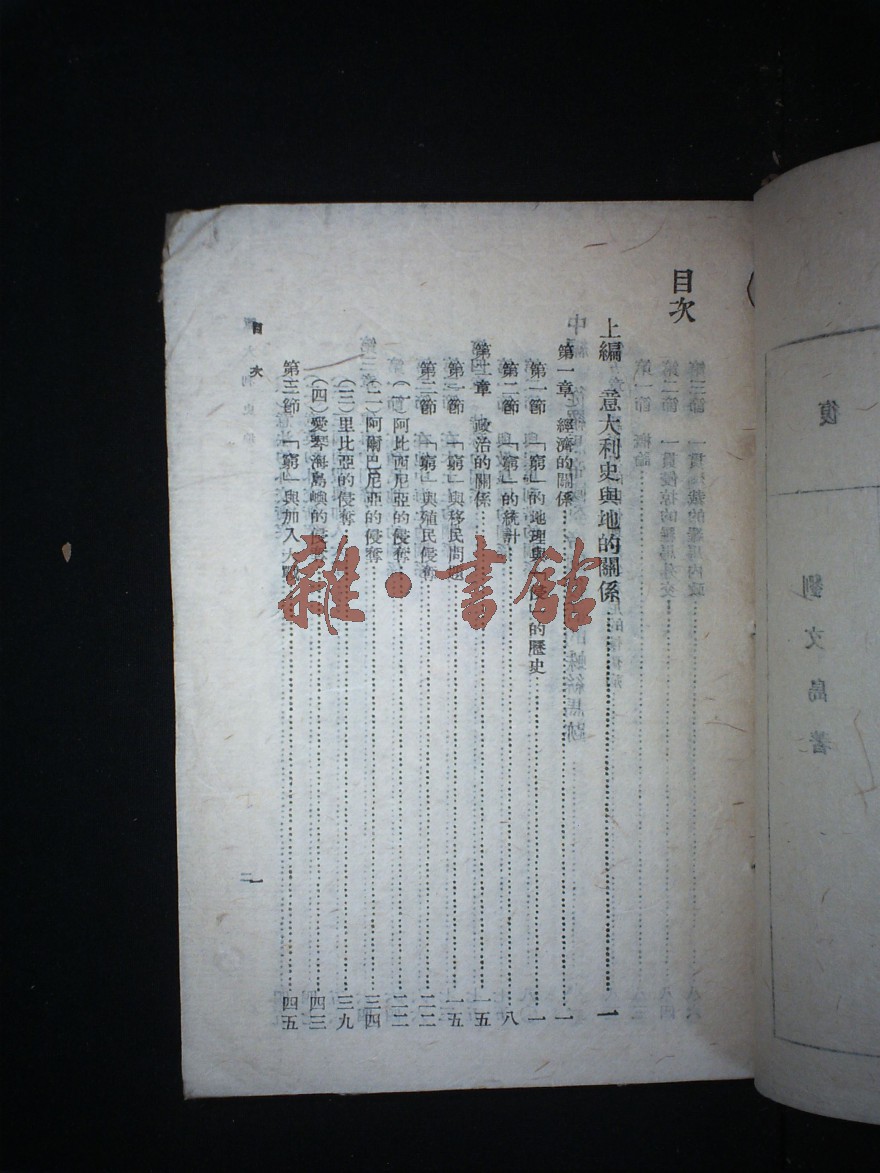 目次
上編 意大利史與地的關係 一
第一章 經濟的關係 一
第一節 「窮」的地理與「侵」的歷史 一
第二節 「窮」的統計 八
第二章 政治的關係 一五
第一節 「窮」與移民問題 一五
第二節 「窮」與殖民侵奪 二二
(一)阿比西尼亞的侵奪 二二
(二)阿爾巴尼亞的侵奪 三四
(三)里比亞的侵奪 三九
(四)愛琴海島嶼的侵奪 四三
第三節 「窮」與加入大戰 四五
目次
一
復
劉文島著
雜·書館